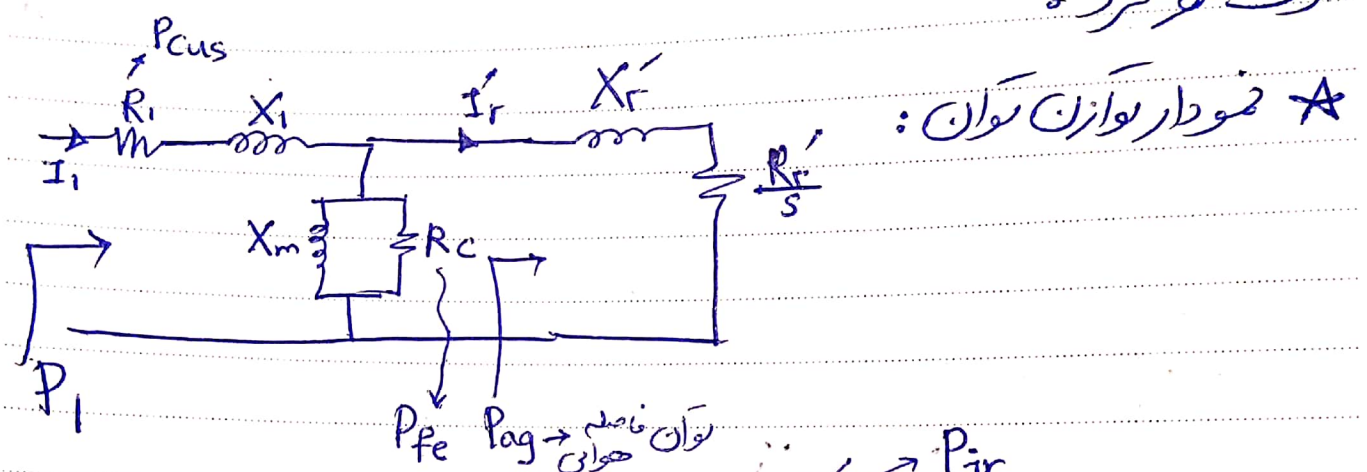 ★ نمودار توازن توان :
Pcus
R₁ X₁ I'r X'r
I₁
R'r/s
Xm Rc
P₁
Pfe Pag → توان فاصله هوایی